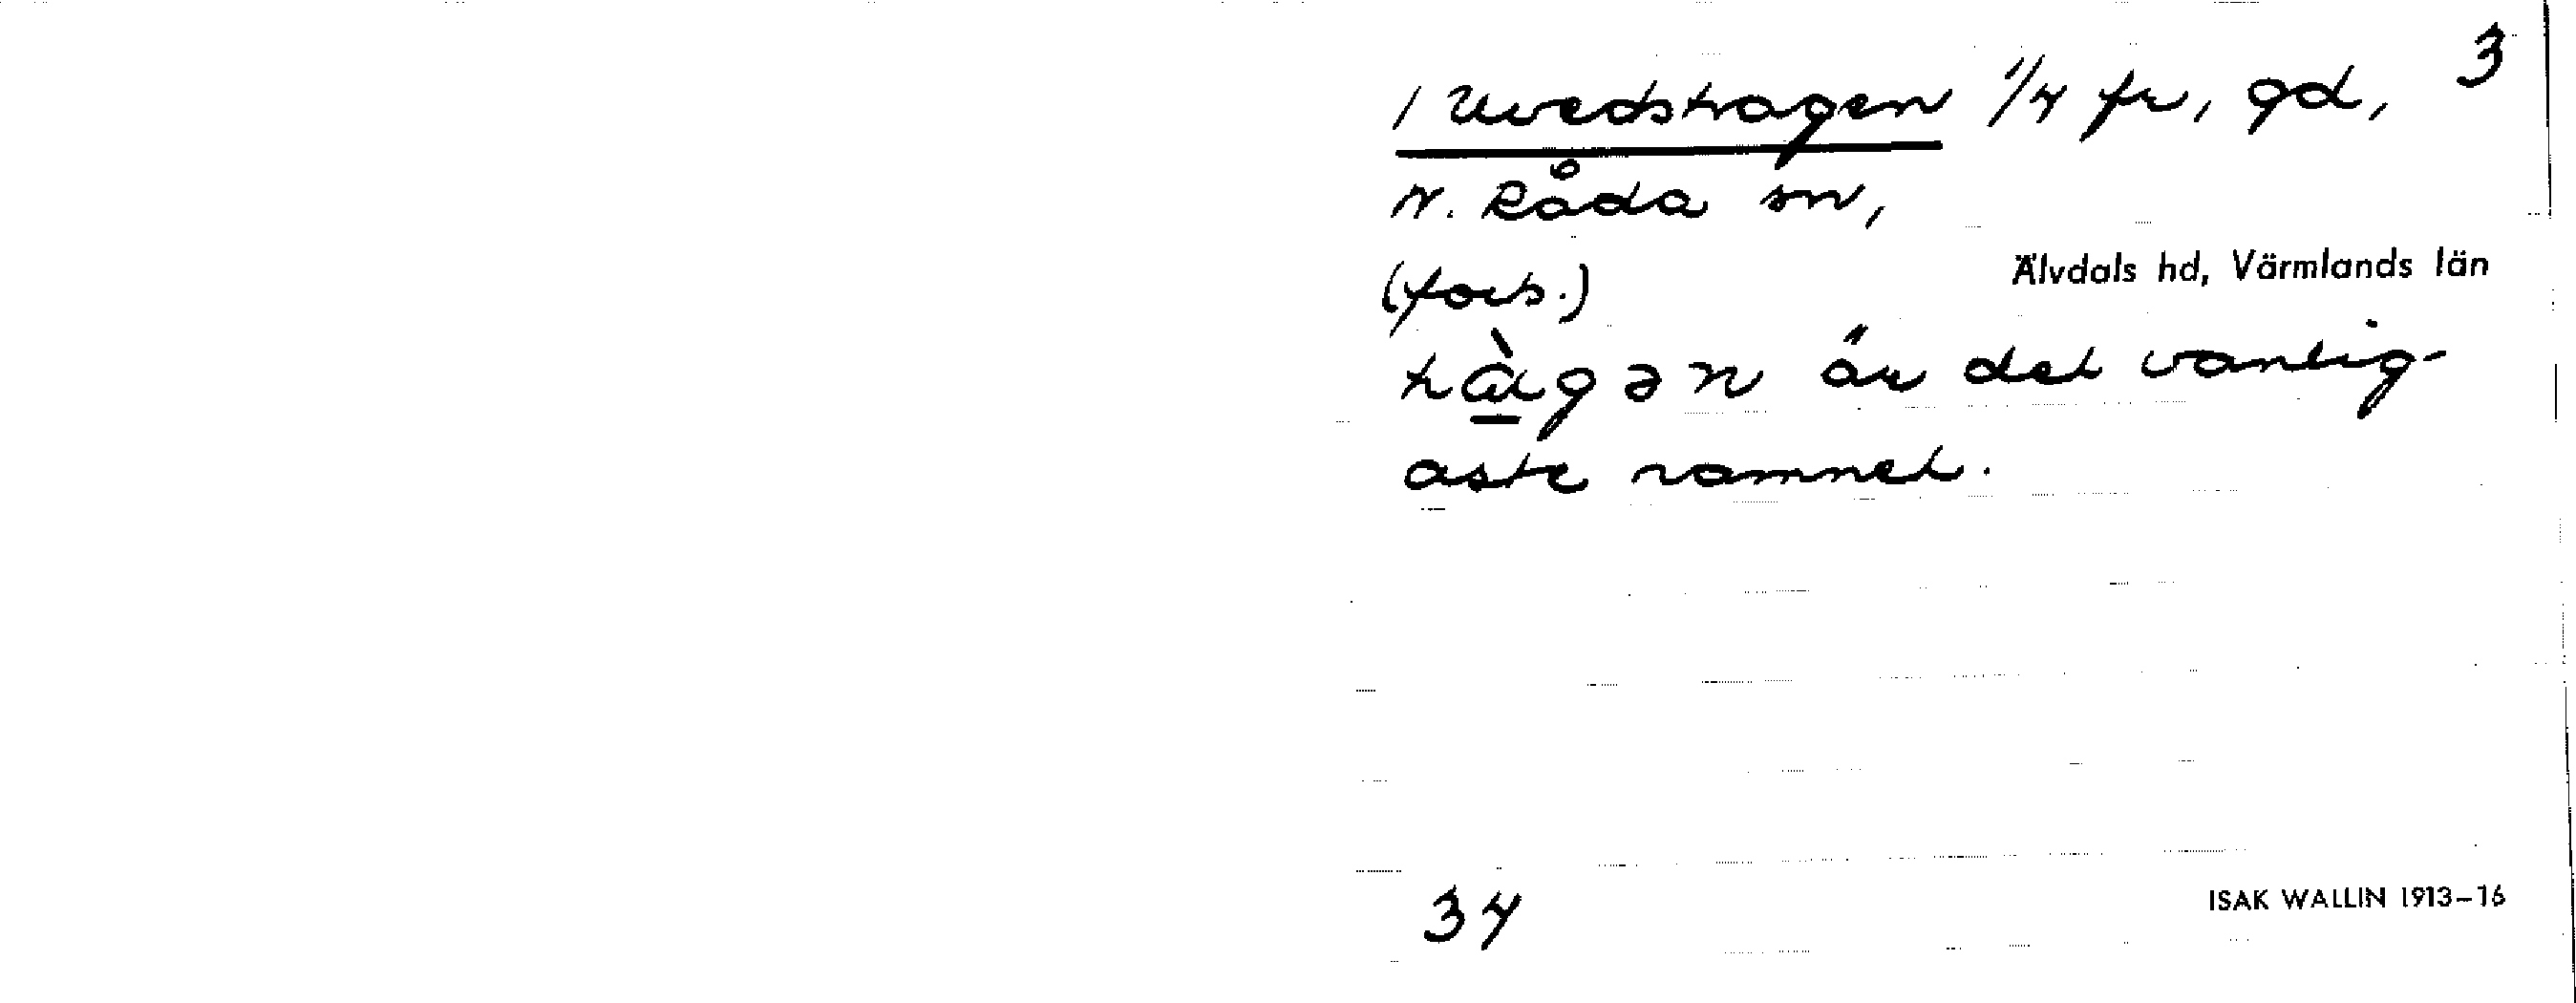 3
/ Uvedstragen 1/4 fr, gd,
N. Råda sn,
Älvdals hd, Värmlands län
(forts.)
tràgən är det vanlig-
aste namnet.
34
ISAK WALLIN 1913–16